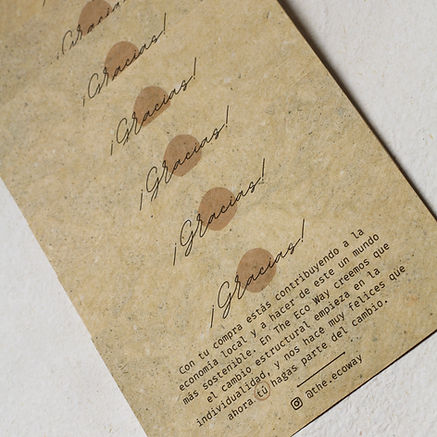 ¡Gracias!
¡Gracias!
¡Gracias!
¡Gracias!
¡Gracias!
¡Gracias!
Con tu compra estás contribuyendo a la
economía local y a hacer de este un mundo
más sostenible. En The Eco Way creemos que
el cambio estructural empieza en la
individualidad, y nos hace muy felices que
ahora tú hagas parte del cambio.
@the.ecoway